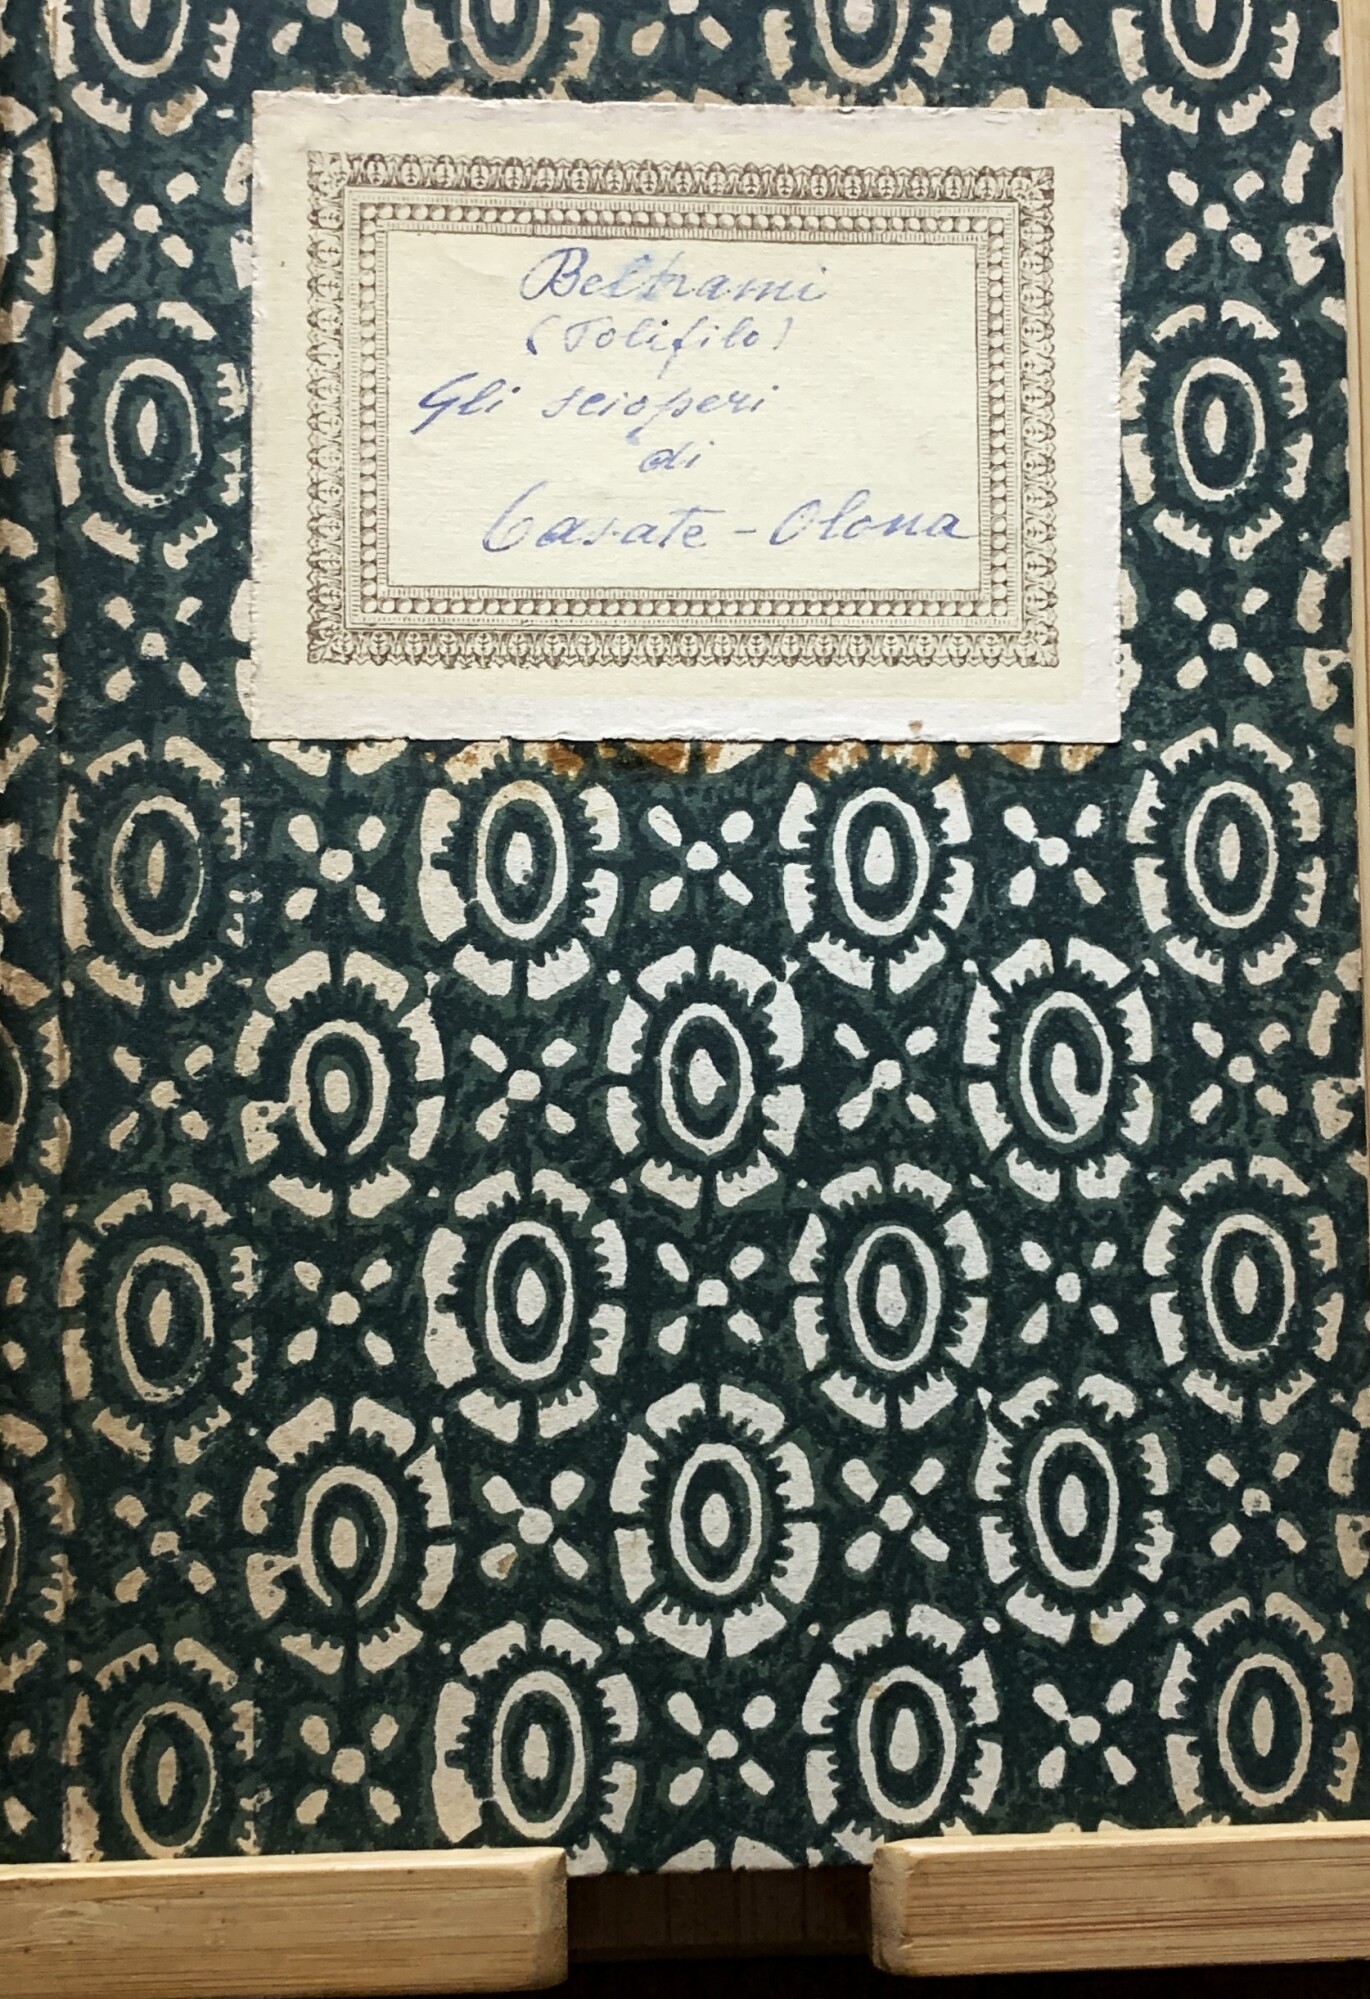 Beltrami
(Polifilo)
Gli scioperi
di
Casate - Olona